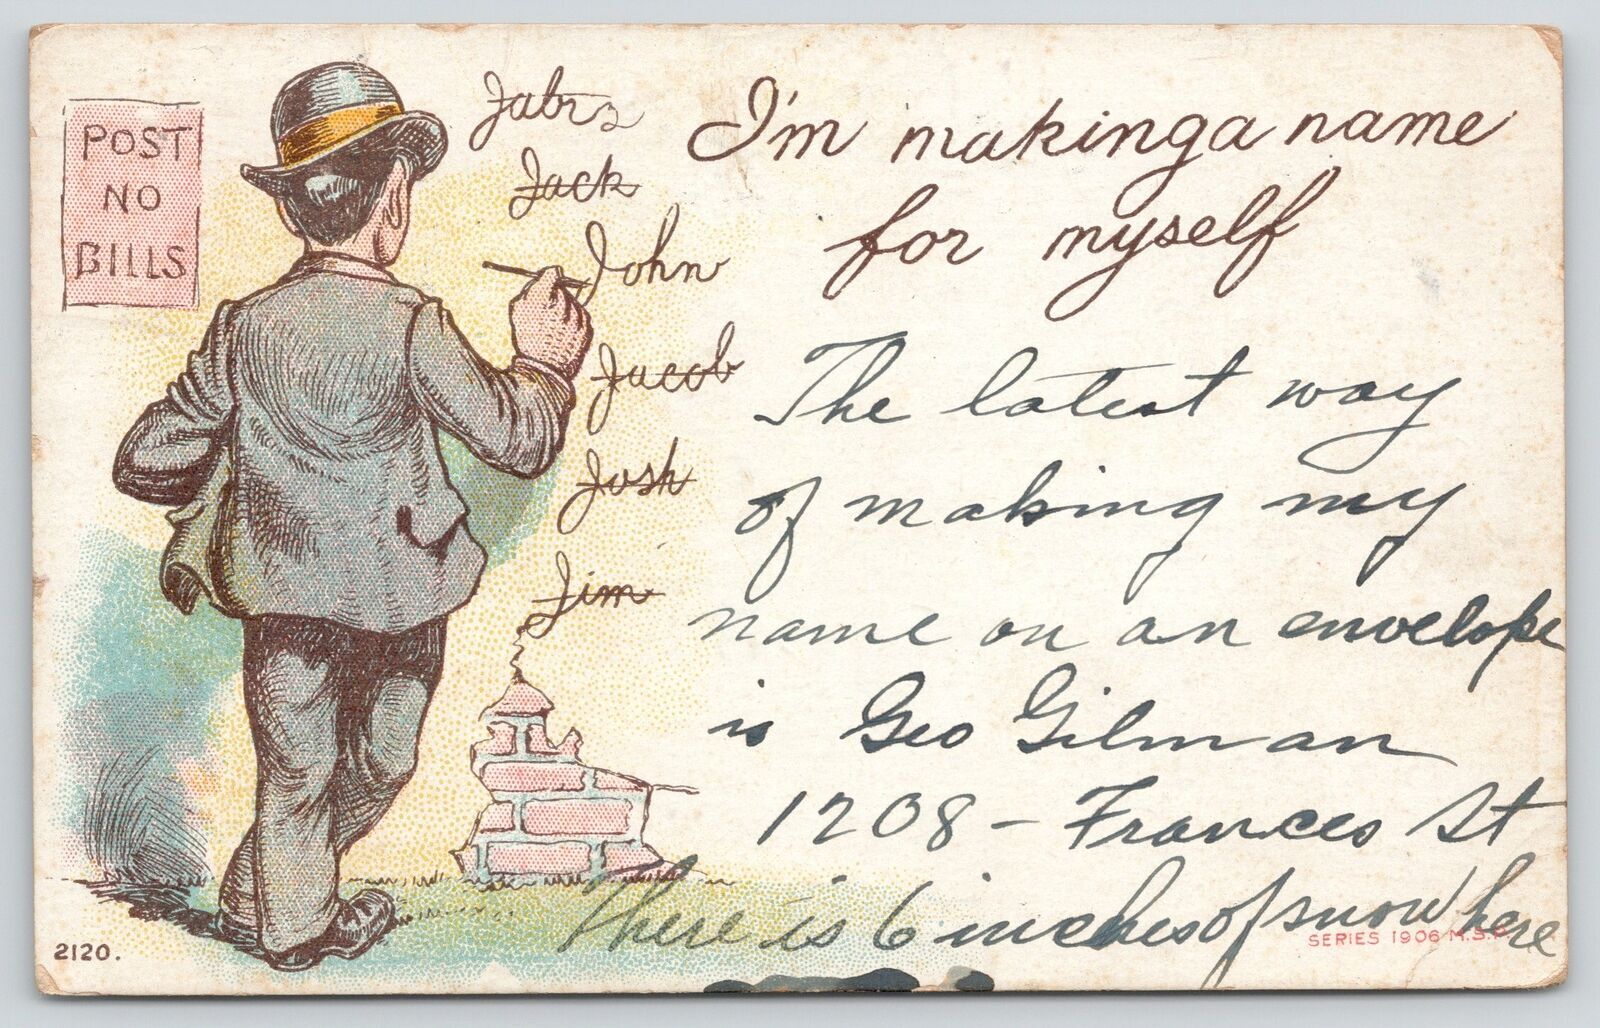 POST
NO
BILLS
Jack
John
Jacob
Josh
Jim
I'm making a name
for myself
The latest way
of making my
name on an envelope
is Geo Gilman
1208 - Frances St
There is 6 inches of snow here
SERIES 1906 M.S.P.
2120.